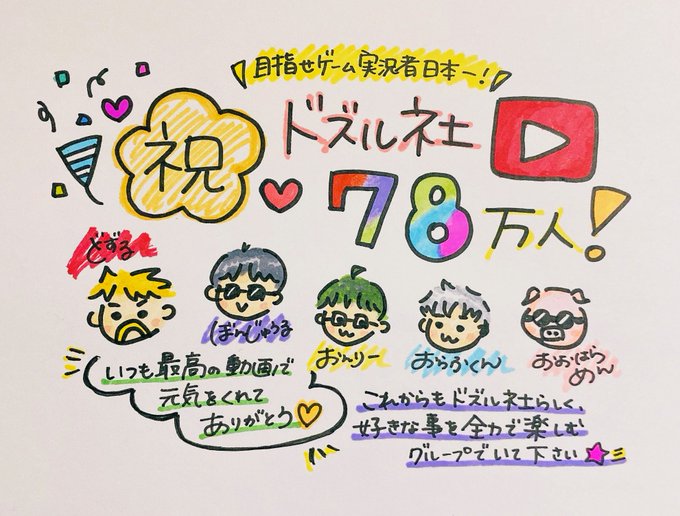 目指せゲーム実況者日本一!
祝
ドズル社
78万人!
どずる
ぼんじゅうる
おんりー
おらふくん
おおはらめん
いつも最高の動画で
元気をくれて
ありがとう
これからもドズル社らしく、
好きな事を全力で楽しむ
グループでいて下さい